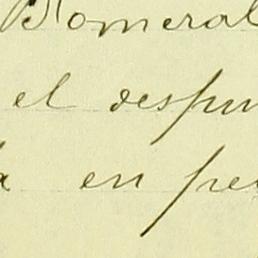 Romeral
el despu
en pe